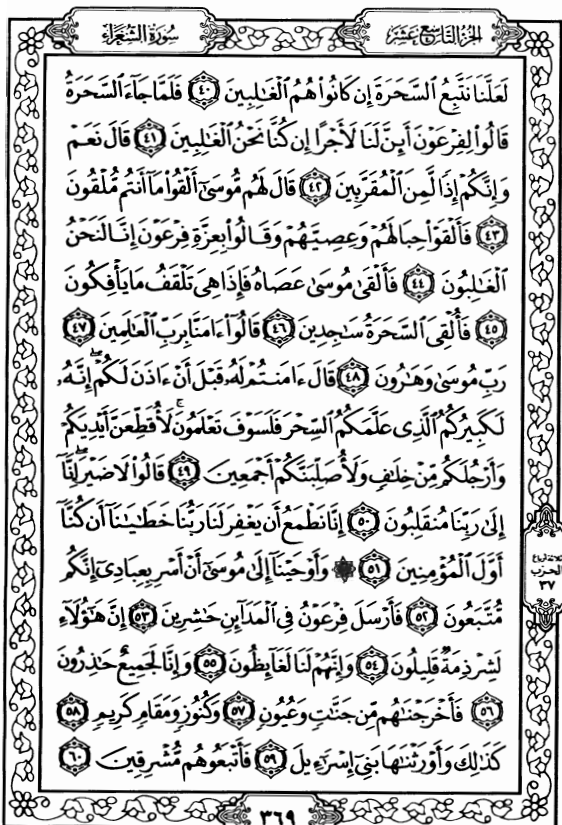 الجزء التاسع عشر
سورة الشعراء
لَعَلَّنَا نَتَّبِعُ السَّحَرَةَ إِن كَانُوا۟ هُمُ الْغَٰلِبِينَ ٤٠ فَلَمَّا جَآءَ السَّحَرَةُ
قَالُوا۟ لِفِرْعَوْنَ أَئِنَّ لَنَا لَأَجْرًا إِن كُنَّا نَحْنُ الْغَٰلِبِينَ ٤١ قَالَ نَعَمْ
وَإِنَّكُمْ إِذًا لَّمِنَ الْمُقَرَّبِينَ ٤٢ قَالَ لَهُم مُّوسَىٰٓ أَلْقُوا۟ مَآ أَنتُم مُّلْقُونَ
٤٣ فَأَلْقَوْا۟ حِبَالَهُمْ وَعِصِيَّهُمْ وَقَالُوا۟ بِعِزَّةِ فِرْعَوْنَ إِنَّا لَنَحْنُ
الْغَٰلِبُونَ ٤٤ فَأَلْقَىٰ مُوسَىٰ عَصَاهُ فَإِذَا هِىَ تَلْقَفُ مَا يَأْفِكُونَ
٤٥ فَأُلْقِىَ السَّحَرَةُ سَٰجِدِينَ ٤٦ قَالُوٓا۟ ءَامَنَّا بِرَبِّ الْعَٰلَمِينَ ٤٧
رَبِّ مُوسَىٰ وَهَٰرُونَ ٤٨ قَالَ ءَامَنتُمْ لَهُۥ قَبْلَ أَنْ ءَاذَنَ لَكُمْ ۖ إِنَّهُۥ
لَكَبِيرُكُمُ الَّذِى عَلَّمَكُمُ السِّحْرَ فَلَسَوْفَ تَعْلَمُونَ ۚ لَأُقَطِّعَنَّ أَيْدِيَكُمْ
وَأَرْجُلَكُم مِّنْ خِلَٰفٍ وَلَأُصَلِّبَنَّكُمْ أَجْمَعِينَ ٤٩ قَالُوا۟ لَا ضَيْرَ ۖ إِنَّآ
إِلَىٰ رَبِّنَا مُنقَلِبُونَ ٥٠ إِنَّا نَطْمَعُ أَن يَغْفِرَ لَنَا رَبُّنَا خَطَٰيَٰنَآ أَن كُنَّآ
أَوَّلَ الْمُؤْمِنِينَ ٥١ ۞ وَأَوْحَيْنَآ إِلَىٰ مُوسَىٰٓ أَنْ أَسْرِ بِعِبَادِىٓ إِنَّكُم
مُّتَّبَعُونَ ٥٢ فَأَرْسَلَ فِرْعَوْنُ فِى الْمَدَآئِنِ حَٰشِرِينَ ٥٣ إِنَّ هَٰٓؤُلَآءِ
لَشِرْذِمَةٌ قَلِيلُونَ ٥٤ وَإِنَّهُمْ لَنَا لَغَآئِظُونَ ٥٥ وَإِنَّا لَجَمِيعٌ حَٰذِرُونَ
٥٦ فَأَخْرَجْنَٰهُم مِّن جَنَّٰتٍ وَعُيُونٍ ٥٧ وَكُنُوزٍ وَمَقَامٍ كَرِيمٍ ٥٨
كَذَٰلِكَ وَأَوْرَثْنَٰهَا بَنِىٓ إِسْرَٰٓءِيلَ ٥٩ فَأَتْبَعُوهُم مُّشْرِقِينَ ٦٠
ثلاثة أرباع
الحزب
٣٧
٣٦٩